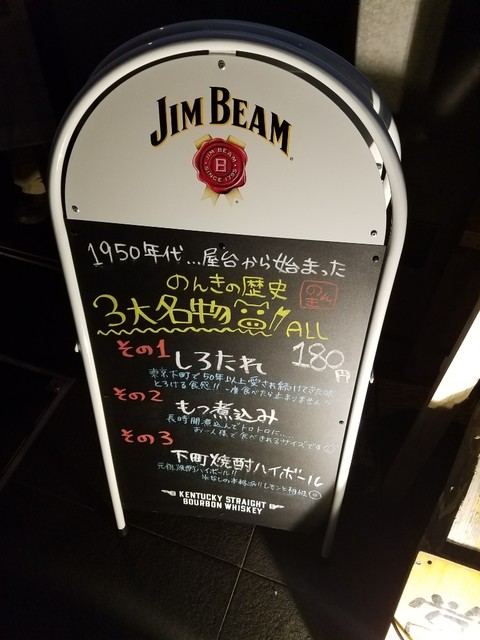 JIM BEAM
JIM BEAM
SINCE 1795
1950年代...屋台から始まった
のんきの歴史
のんき
3大名物 ALL
180円
その1 しろたれ
東京下町で50年以上愛され続けてきた味
とろける食感!! 一度食べたら止まりません
その2
もつ煮込み
長時間煮込んでトロトロに.....
お一人様で食べきれるサイズです
その3
下町焼酎ハイボール
元祖焼酎ハイボール!!
KENTUCKY STRAIGHT
BOURBON WHISKEY